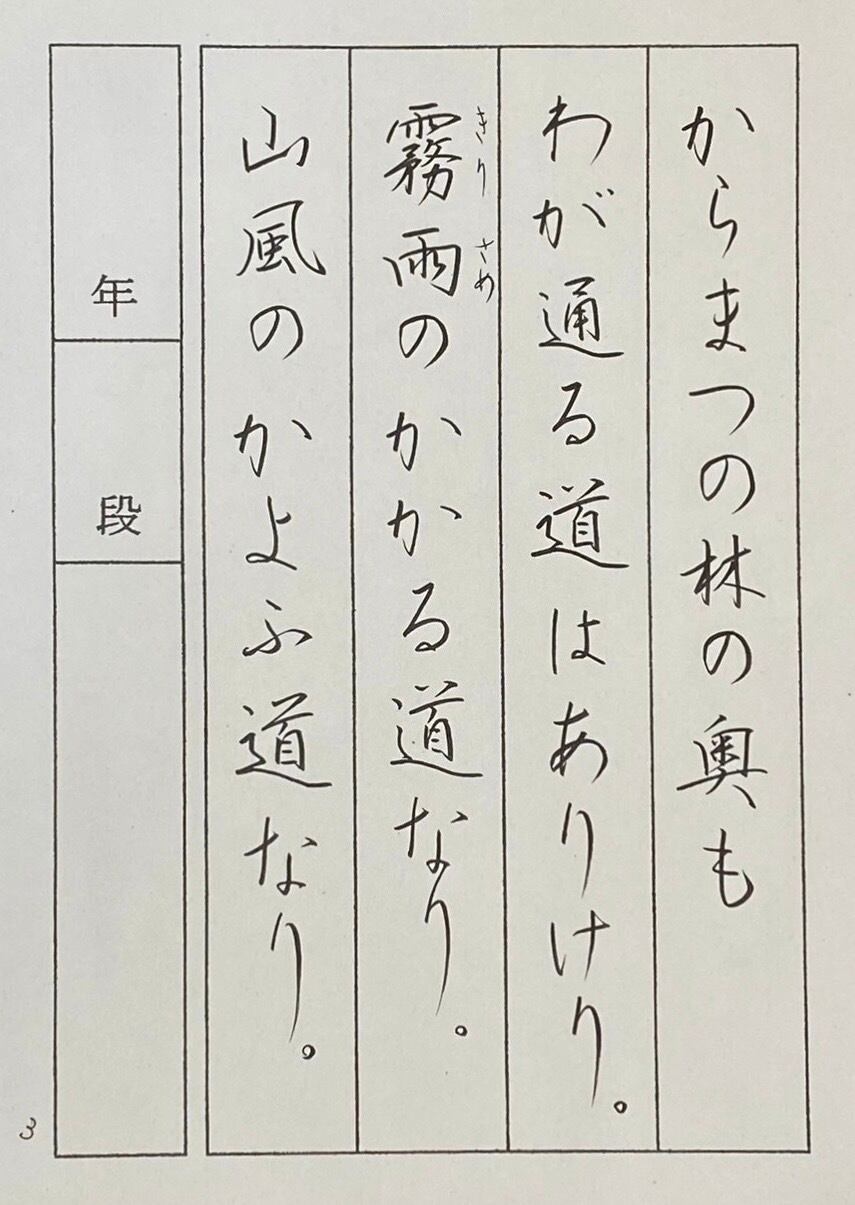 からまつの林の奥も
わが通る道はありけり。
霧雨のかかる道なり。
きりさめ
山風のかよふ道なり。
年
段
3